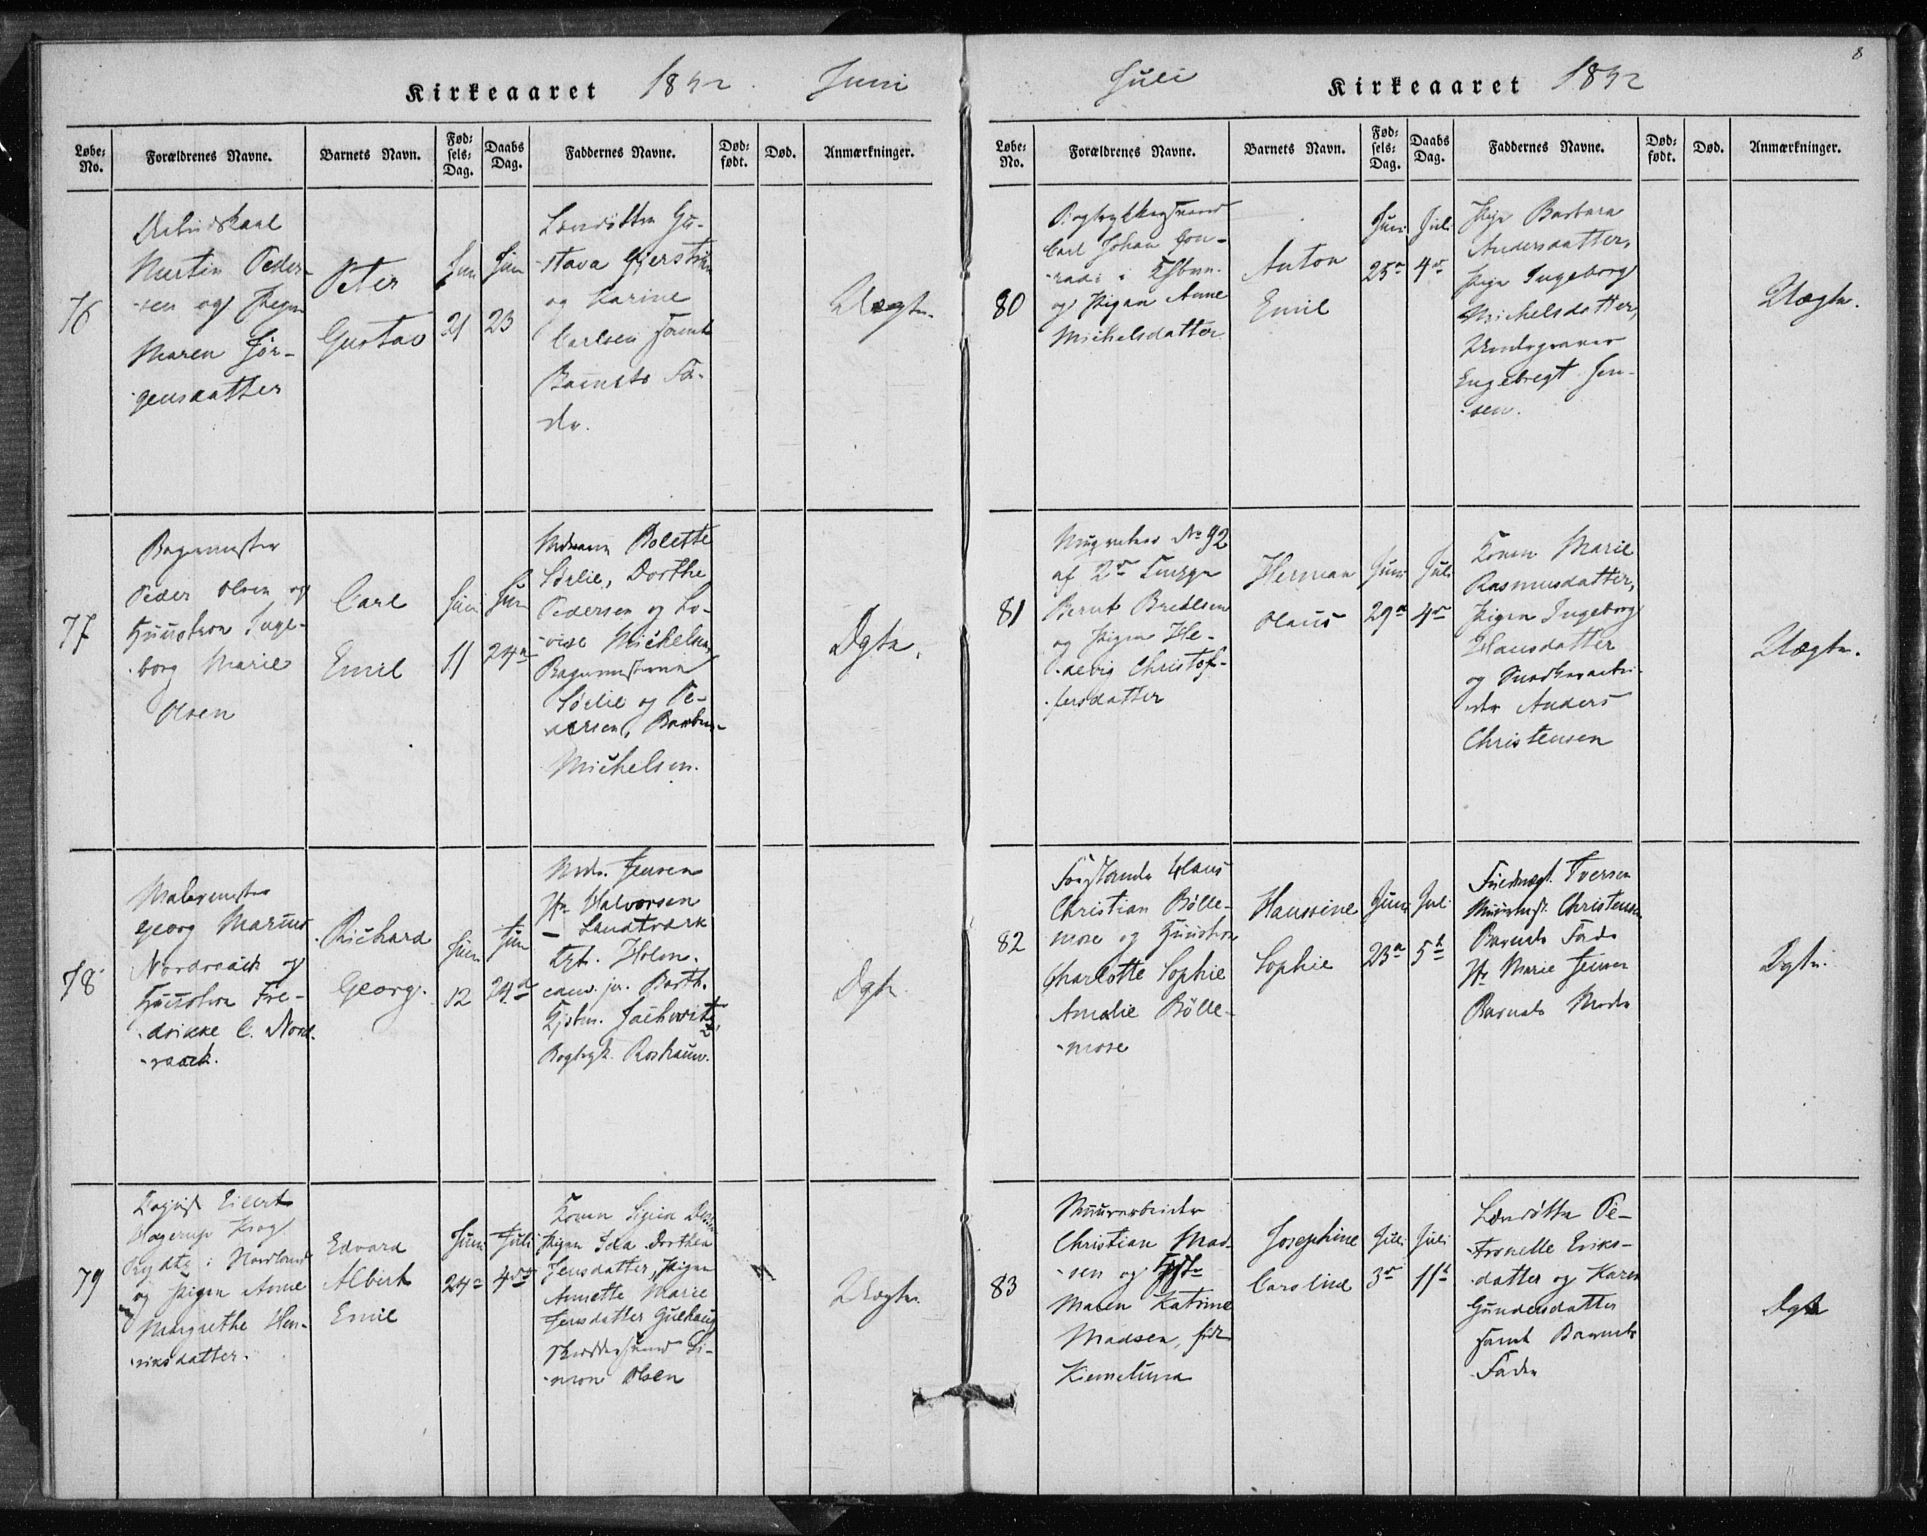 Kirkeaaret 1852. Juni
Løbe-No. Forældrenes Navne. Barnets Navn. Fødsels-Dag. Daabs Dag. Faddernes Navne. Død-født. Død. Anmærkninger.
76
Martin Peder-
sen og Pigen
Maren Jør-
gensdatter
Peter
Gustav
Jun
21
Jun
23
Gu-
stava
og Karine
Carlsen samt
Barnets Fa-
der.
Uægte.
77
Bagermester
Peder Olsen og
Hustru Inge-
borg Marie
Olsen
Carl
Emil
Juni
11
Juni
24
Madame Bolette
Sørlie, Dorthe
Pedersen og Lo-
vise Michelsen
Bagermesterne
Sørlie og Pe-
dersen,
Michelsen.
Ægte.
78
Malermester
Georg Marius
Nordraack og
Hustru Fre-
drikke C. Nord-
raack.
Richard
Georg.
Juni
12
Juni
24
Mad. Jensen
Hr. Halvorsen
- Landtværk
Holm.
cand. jur. Barth.
Bogtryk.
Ægte
79
Eilert
Hagerup Krog
Prydtz i Nordland
og Pigen Anne
Margrethe Hen-
riksdatter.
Edvard
Albert
Emil
Juni
24
Juli
4
Konen
Pigen Ida Dorthea
Jensdatter, Pigen
Annette Marie
Jensdatter Gulhaug
Si-
mon Olsen
Uægte.
8
Juli Kirkeaaret 1852
Løbe-No. Forældrenes Navne. Barnets Navn. Fødsels-Dag. Daabs Dag. Faddernes Navne. Død-født. Død. Anmærkninger.
80
Bogtrykkersvend
Carl Johan Con-
radi i
og Pigen Anne
Michelsdatter
Anton
Emil
Juni
25
Juli
4
Pige Barbara
Andersdatter,
Pige Ingeborg
Michelsdatter,
Engebregt Jen-
sen.
Uægte.
81
No 92
af 2
Bernt Bredesen
og Pigen He-
devig Christof-
fersdatter
Herman
Olaus
Juni
29
Juli
4
Konen Marie
Rasmusdatter,
Pigen Ingeborg
Hansdatter
og Snedkerarbei-
der Anders
Christensen
Uægte.
82
Claus
Christian Bølle-
mose og Hustru
Charlotte Sophie
Amalie Bølle-
mose
Hansine
Sophie
Juni
23
Juli
5
Iversen
Christensen
Barnets Fader
Marie Jensen
Barnets Moder
Ægte.
83
Muurarbeider
Christian Mad-
sen og
Maren Katrine
Madsen, født
Josephine
Caroline
Juli
3
Juli
11
Pe-
tronelle Eriks-
datter og Karen
Gundersdatter
samt Barnets
Fader
Ægte